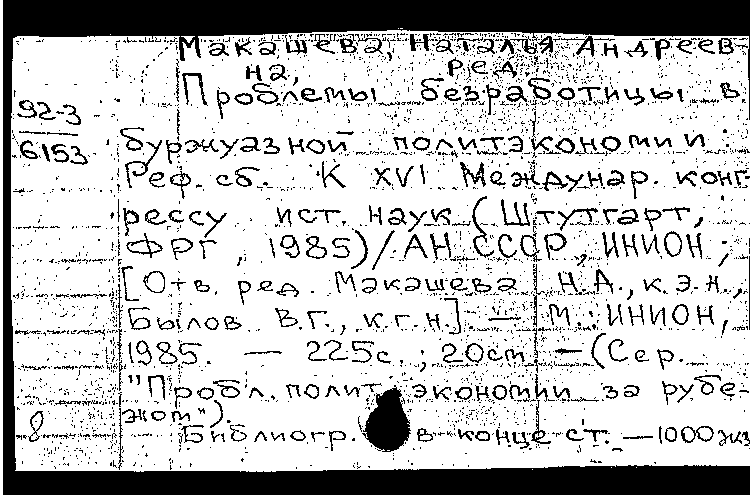 Макашева, Наталья Андреев-
на, ред
Проблемы безработицы в
92-3
6153
буржуазной политэкономии:
Реф. сб. К XVI Междунар. конг-
рессу ист. наук (Штутгарт,
ФРГ, 1985)/АН СССР, ИНИОН;
[Отв. ред. Макашева Н.А., к.э.н.,
Былов В.Г., к.г.н.] — М.: ИНИОН,
1985. — 225с.; 20см. — (Сер.
"Пробл. полит. экономии за рубе-
жом").
8
Библиогр. в конце ст. — 1000 экз